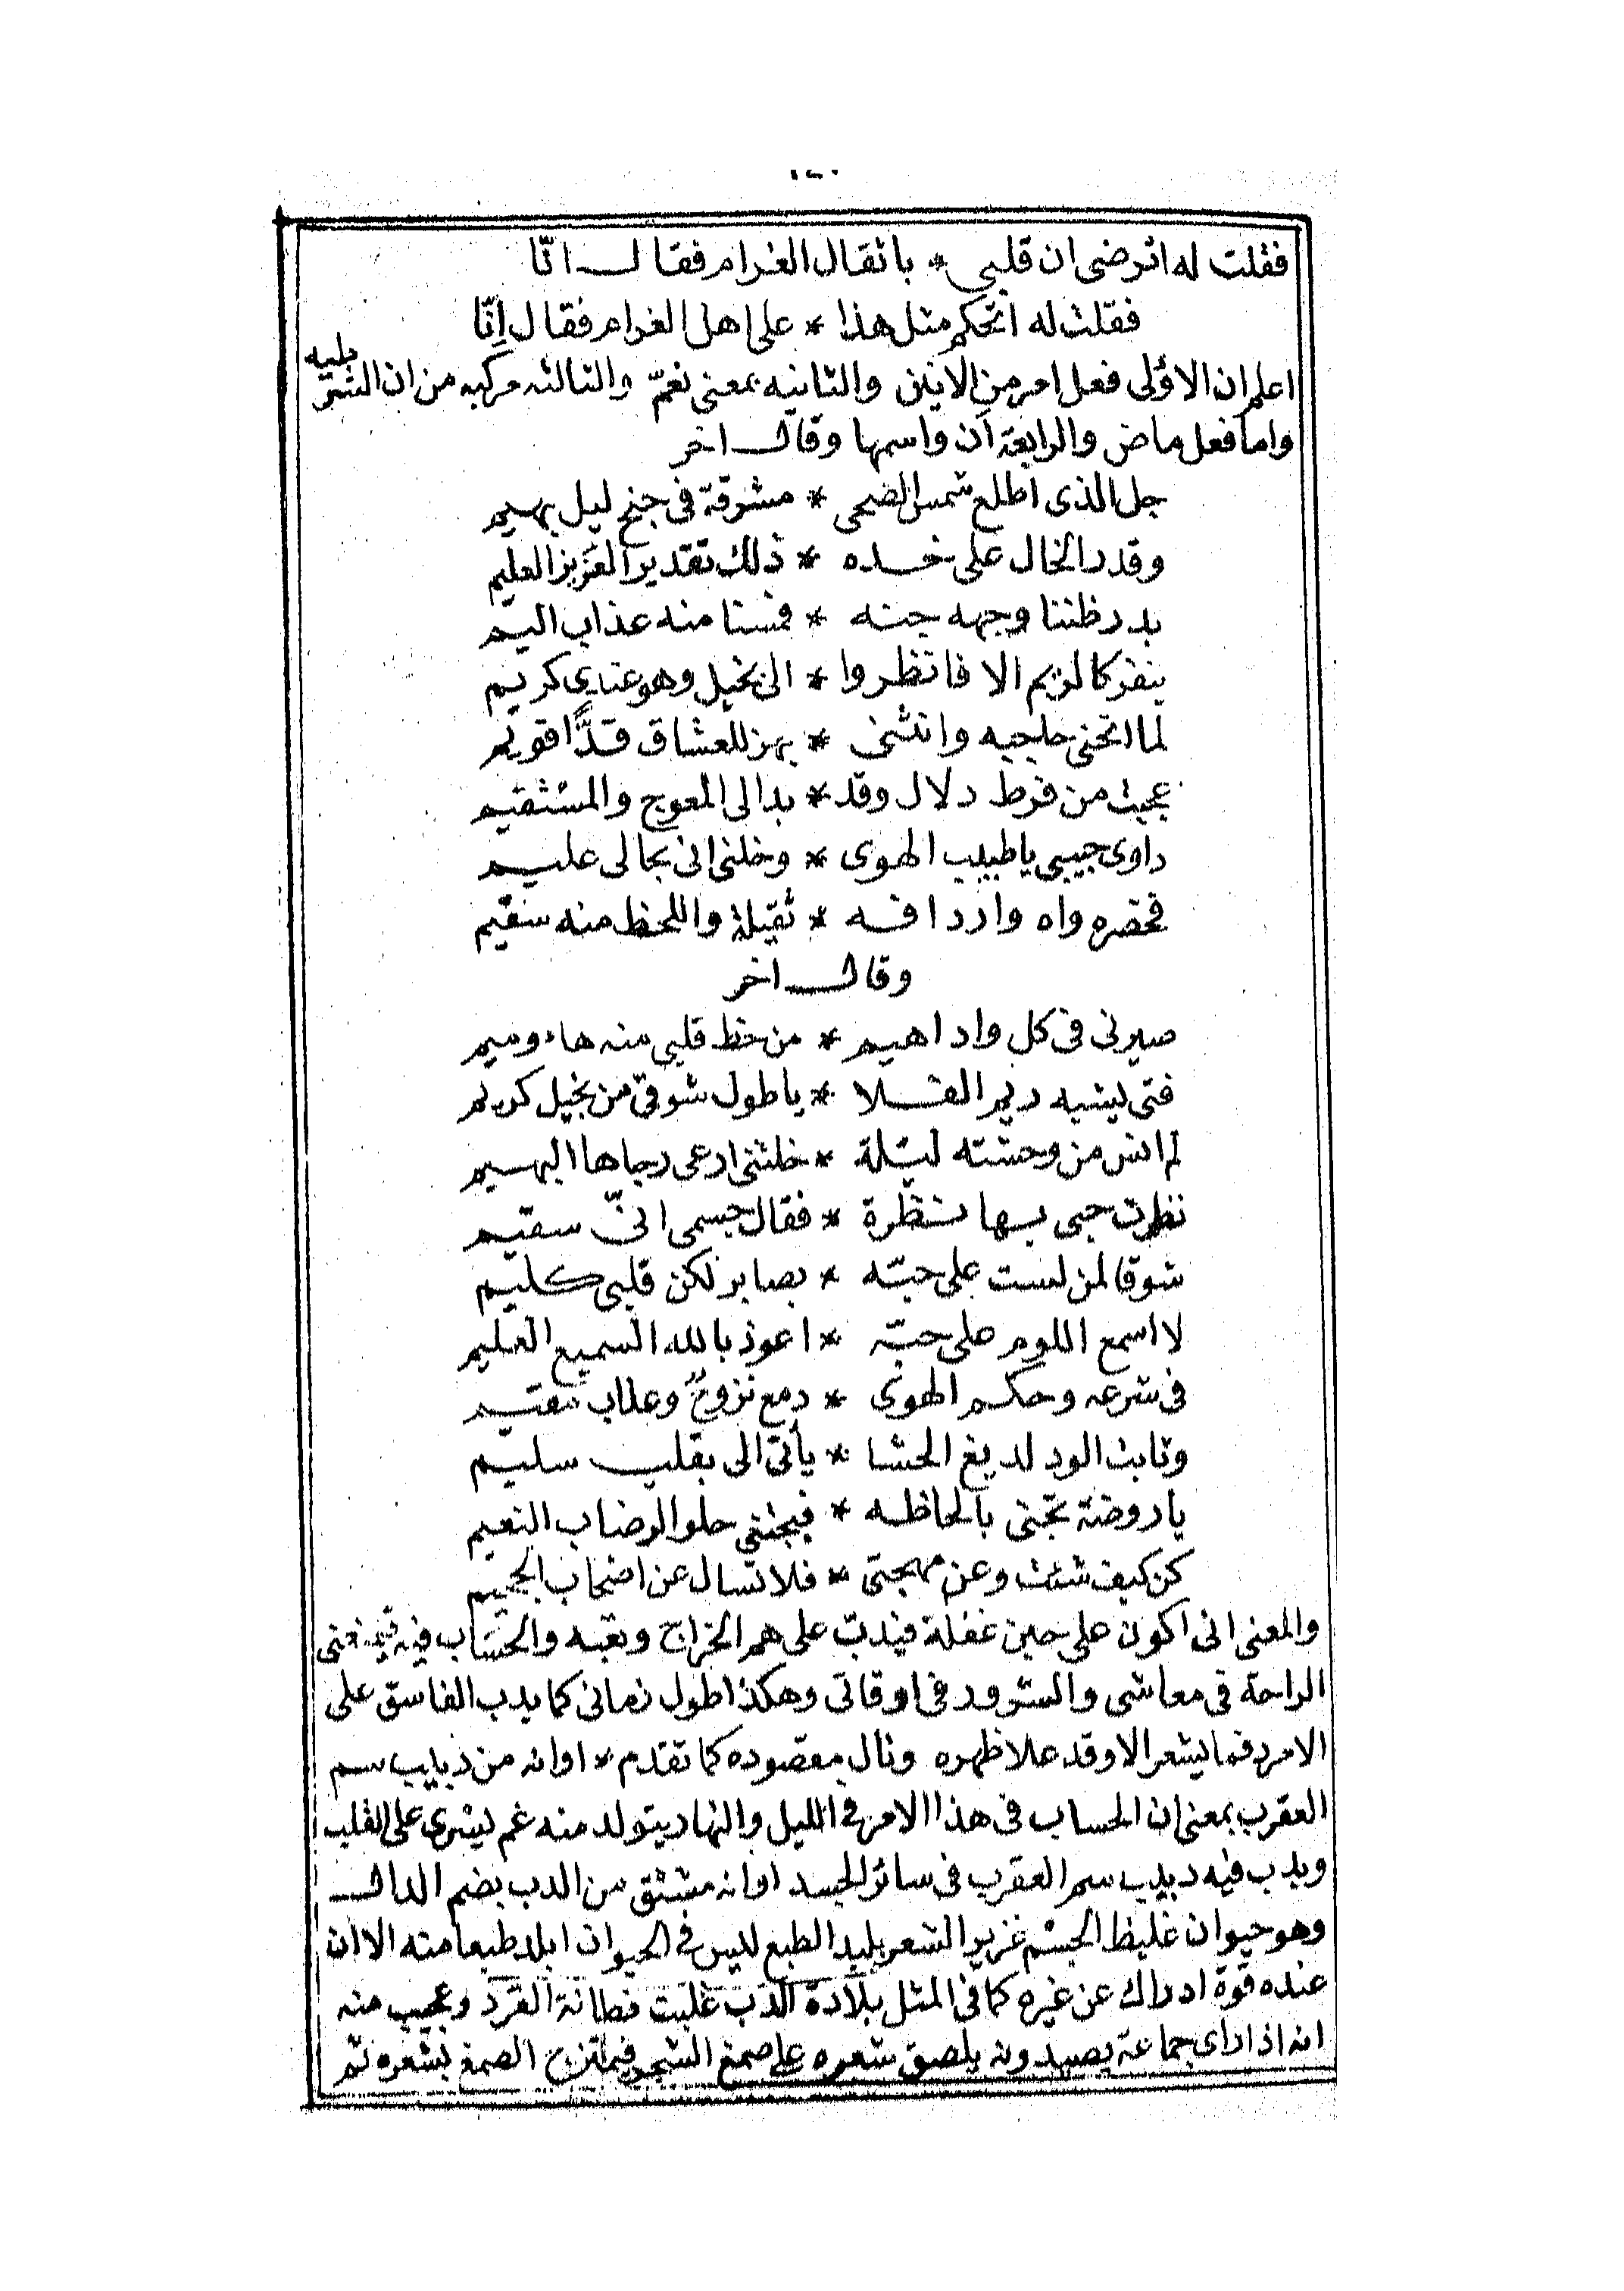 ١٤٠
فقلت له اترضى ان قلبى * باثقال الغرام فقال انّا
فقلت له اتحكم مثل هذا * على اهل الغرام فقال اِنّا
اعلم ان الاولى فعل امر من الانين والثانيه بمعنى نعم والثالثه مركبه من ان الشرطيه
واما فعل ماض والرابعة ان واسمها وقال اخر
جل الذى اطلع شمس الضحى * مشرقة فى جنح ليل بهيم
وقدر الخال على خده * ذلك تقدير العزيز العليم
بدر ظننا وجهه جنه * فمسنا منه عذاب اليم
ينفر كالريم الا فانظروا * الى بخيل وهو عندى كريم
لما انحنى حاجبه وانثنى * يهز للعشاق قدًّا قويم
عجبت من فرط دلال وقد * بدا لى المعوج والمستقيم
داوى حبيبى يا طبيب الهوى * وخلنى انى بحالى عليم
فخصره واه واردافه * ثقيلة واللحظ منه سقيم
وقال اخر
صيرنى فى كل واد اهيم * من حظ قلبى منه هاء وميم
فتى يشبه ريم الفلا * يا طول شوقى من بخيل كريم
لم انس من وحشته ليلة * خلتنى ارعى دجاها البهيم
نظرت حبى بها نظرة * فقال جسمى انى سقيم
شوقا لمن لست على حبّه * بصابر لكن قلبى كليم
لا اسمع اللوم على حبّه * اعوذ بالله السميع العليم
فى شرعه وحكم الهوى * دمع نزوح وعذاب مقيم
وثابت الود لديغ الحشا * يأتى الى بقلب سليم
يا روضة تجنى بالحاظه * فيجتنى حلو الرضاب النعيم
كن كيف شئت وعن مهجتى * فلا تسال عن اصحاب الجحيم
والمعنى انى اكون على حين غفلة فيدب على هم الخراج وتعبه والحساب فيه فيمنعنى
الراحة فى معاشى والسرور فى اوقاتى وهكذا طول زمانى كما يدب الفاسق على
الامرد فما يشعر الا وقد علا ظهره ونال مقصوده كما تقدم * اوانه من دبيب سم
العقرب بمعنى ان الحساب فى هذا الامر فى الليل والنهار يتولد منه غم ليسرى على القلب
ويدب فيه دبيب سم العقرب فى سائر الجسد اوانه مشتق من الدب بضم الدال
وهو حيوان غليظ الجسم غزير الشعر بليد الطبع ليس فى الحيوان ابلد طبعا منه الا ان
عنده قوة ادراك عن غيره كما فى المثل بلادة الدب غلبت فطانة القرد وعجيب منه
انه اذا راى جماعة يصيدونه يلصق شعره على صمغ الشجر فيمتزج الصمغ بشعره ثم